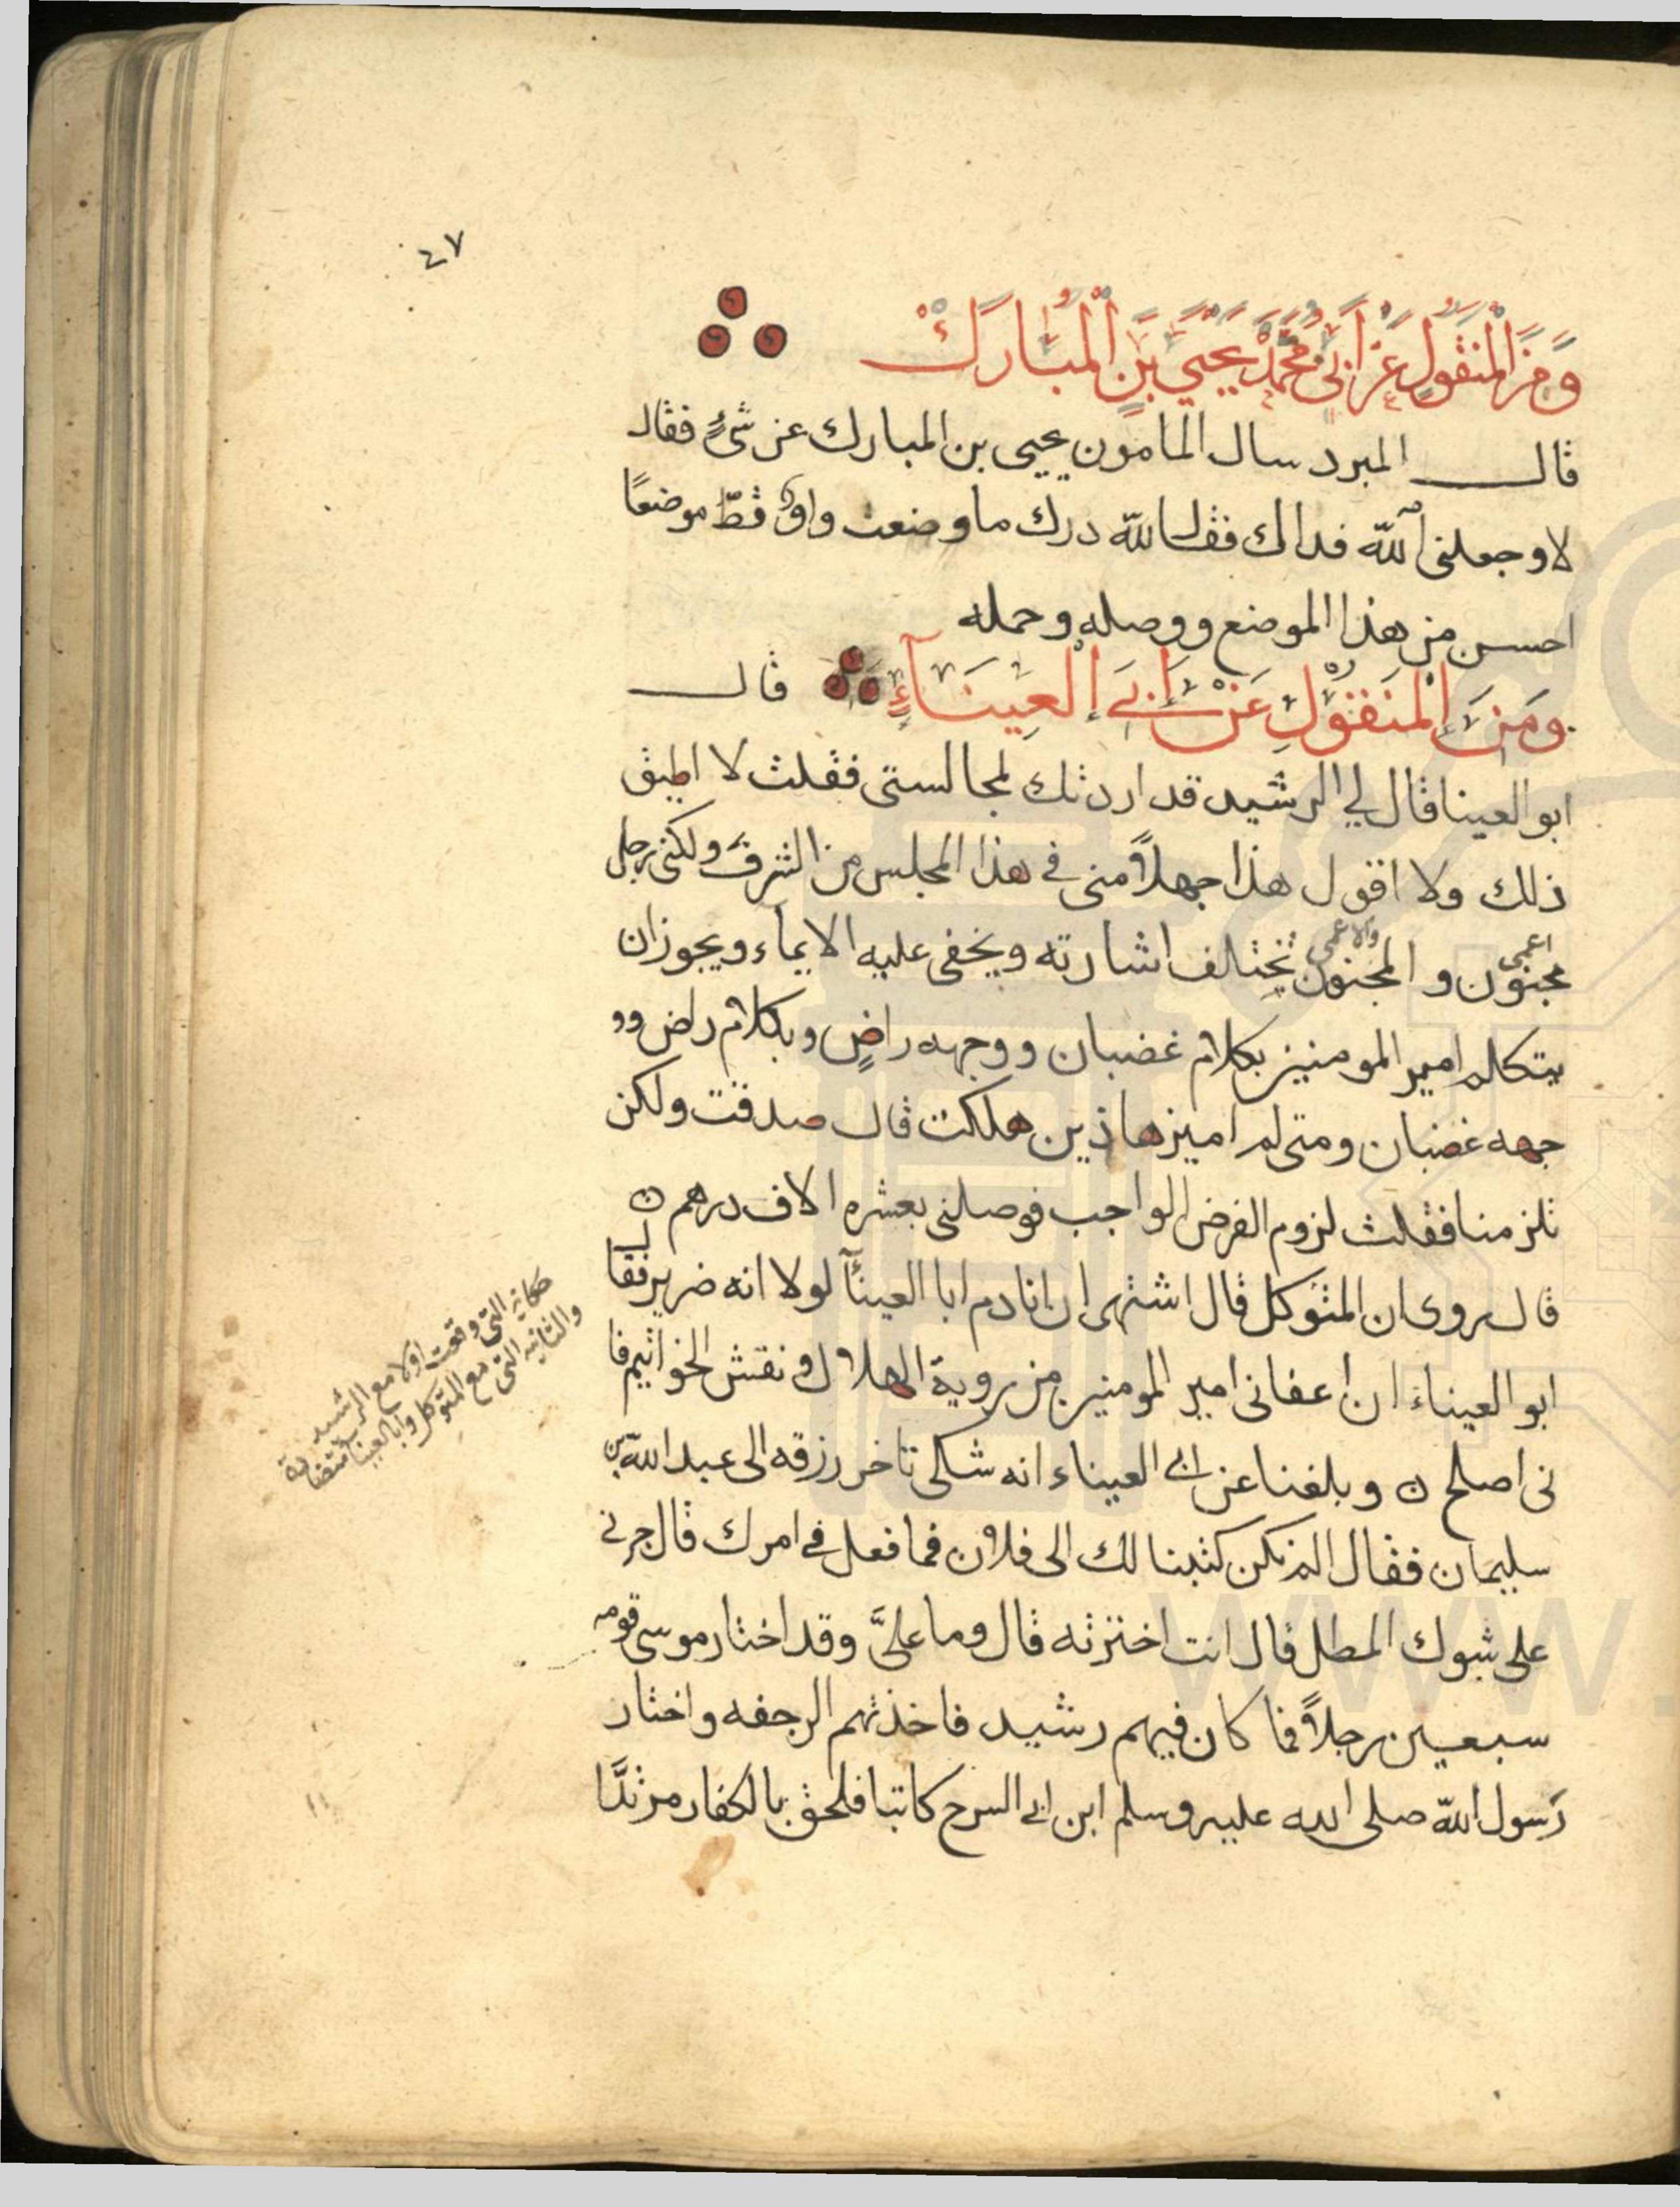 ٤٧
وَمِنَ الْمَنْقُولِ عَنْ اَبِي مُحَمَّدْ يَحْيَي بْنِ الْمُبَارَكْ
قال المبرد سال المامون يحيى بن المبارك عن شيءٍ فقال
لا وجعلني الله فداك فقال لله درك ما وضعت واوٌ قطّ موضعًا
احسن من هذا الموضع ووصله وحمله
ومَنَ الْمنَقوْلِ عَنْ اَبي العِينَاءِ قال
ابو العينا قال لي الرشيد قد اردتك لمجالستي فقلت لا اطيق
ذلك ولا اقول هذا جهلاً مني في هذا المجلس من الشرف ولكني رجل
اعمى والاعمى
مجنون و المجنون تختلف اشارته ويخفى عليه الايماء ويجوز ان
يتكلم امير المومنين بكلام غضبان ووجهه راضٍ وبكلام راض وو
جهه غضبان ومتى لم اميز هاذين هلكت قال صدقت ولكن
تلزمنا فقلت لزوم الفرض الواجب فوصلني بعشره الاف درهم ن
قال روى ان المتوكل قال اشتهى ان انادم ابا العيناآ لولا انه ضرير فقال
ابو العيناء ان اعفاني امير المومنين من روية الهلال ونقش الخواتيم فا
ني اصلح ن وبلغنا عن ابي العيناء انه شكى تاخر رزقه الى عبد الله بن
سليمان فقال الم نكن كتبنا لك الى فلان فما فعل في امرك قال جرني
على شوك المطل قال انت اخترته قال وما عليَّ وقد اختار موسى قومه
سبعين رجلاً فما كان فيهم رشيد فاخذتهم الرجفه واختار
رسول الله صلى الله عليه وسلم ابن ابي السرح كاتبا فلحق بالكفار مرتدًّا
حكاية التي وقعت اولا مع الرشيد
والثانيه التي مع المتوكل وابا العينا
www.